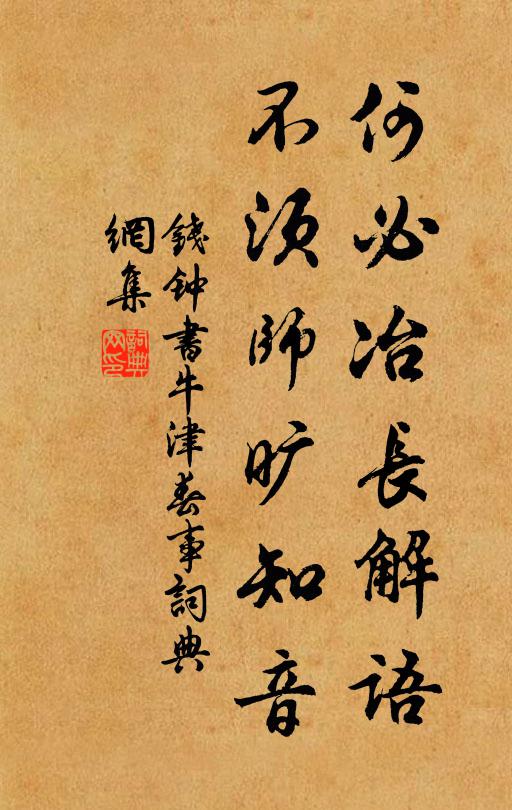 何必冶長解語
不須師旷知音
錢钟書牛津春事詞典
網集
詞典
网印